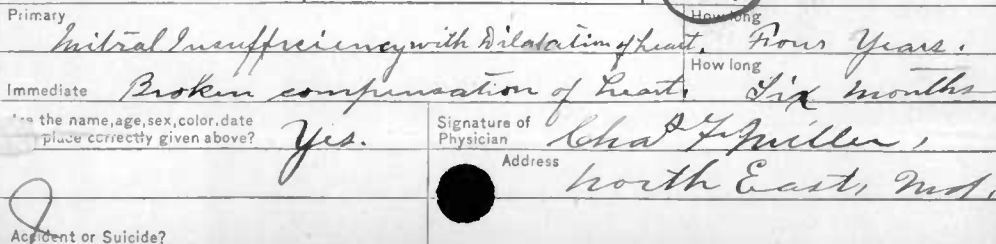 Primary How long
Mitral Insufficiency with Dilatation of heart. Four Years.
How long
Immediate Broken compensation of heart. Six months
the name, age, sex, color. date
place correctly given above? Yes.
Signature of
Physician Chas F Miller,
Address
North East, Md.
Accident or Suicide?